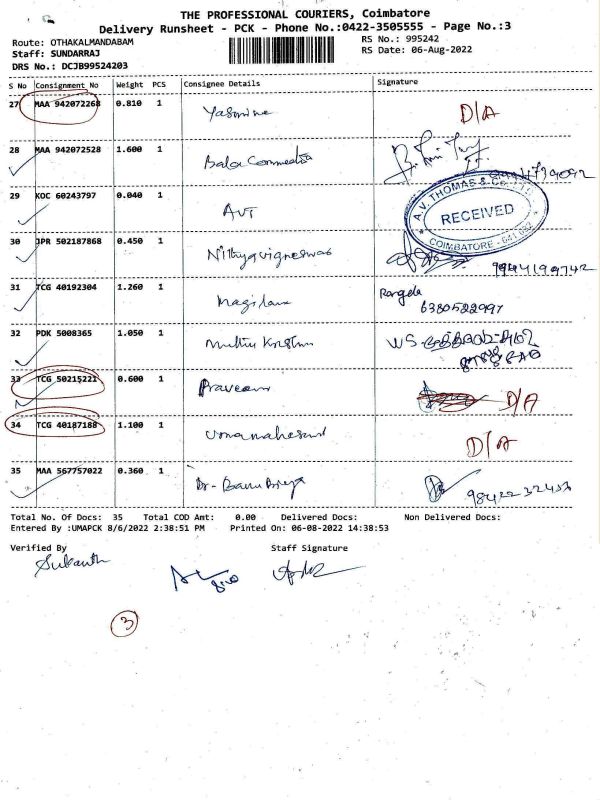 THE PROFESSIONAL COURIERS, Coimbatore
Delivery Runsheet - PCK - Phone No.:0422-3505555 - Page No.:3
Route: OTHAKALMANDABAM
RS No.: 995242
Staff: SUNDARRAJ
RS Date: 06-Aug-2022
DRS No.: DCJB99524203
S No Consignment No Weight PCS Consignee Details Signature
27 MAA 942072268 0.810 1 Yasmine D/A
28 MAA 942072528 1.600 1 Bala
29 KOC 60243797 0.040 1 AVT
A.V. THOMAS & Co.
RECEIVED
COIMBATORE - 641 032
30 JPR 502187868 0.450 1 Nithyavigneswar
9944199742
31 TCG 40192304 1.260 1 Magilan Rangela
6380522997
32 PDK 5008365 1.050 1 Muthu
33 TCG 50215221 0.600 1 Praveen D/A
34 TCG 40187188 1.100 1 Umamaheswari D/A
35 MAA 567757022 0.360 1 Dr. Banu Priya
Total No. Of Docs: 35 Total COD Amt: 0.00 Delivered Docs: Non Delivered Docs:
Entered By :UMAPCK 8/6/2022 2:38:51 PM Printed On: 06-08-2022 14:38:53
Verified By Staff Signature
Sukanth
3